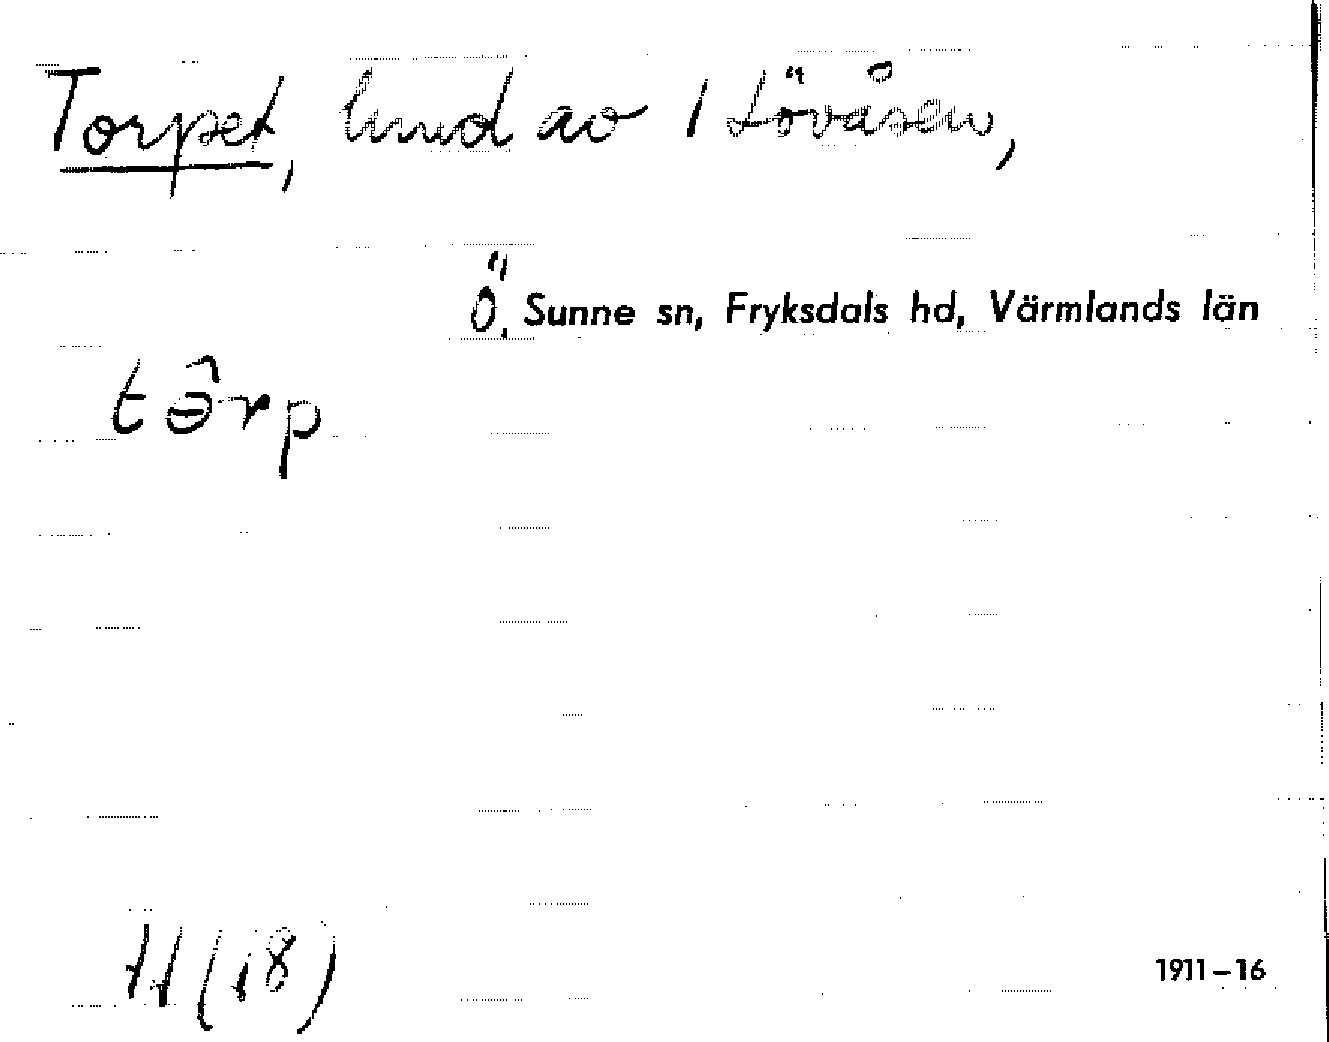 Torpet, lmd av 1 Lövåsen,
Ö. Sunne sn, Fryksdals hd, Värmlands län
tɵ̂rp
H (18)
1911–16